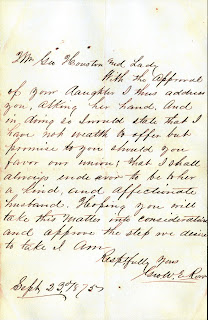 Mr Geo Houston and Lady
With the Approval
of your daughter I thus address
you, Asking her hand. And
in doing so I would state that I
have not wealth to offer but
promise to you should you
favor our union; that I shall
always endeavor to be to her
a kind, and affectionate
husband. Hoping you will
take this matter into consideration
and approve the step we desire
to take I Am
Respectfully Yours
Geo. W. E.
Sept 23d 1875